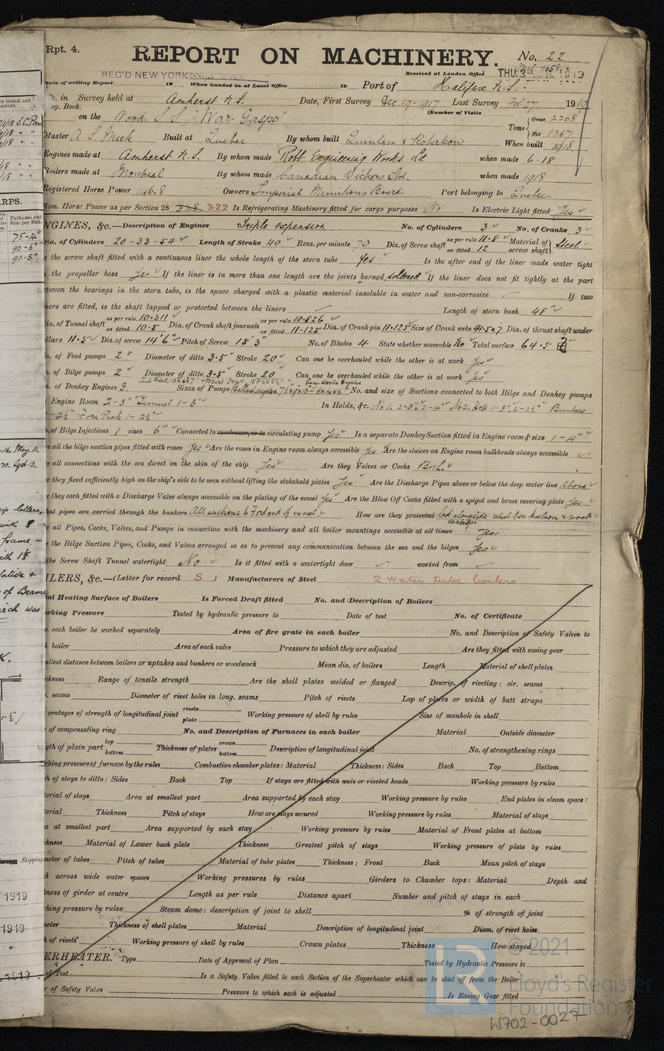 Rpt. 4.
REPORT ON MACHINERY. No. 22
REC'D NEW YORK
Received at London Office THU. 3 1919
Date of writing Report 19 When handed in at Local Office 19 Port of Halifax N.S.
No. in Survey held at Amherst N.S. Date, First Survey Dec 19-1917 Last Survey Feb 27 1919
Reg. Book. (Number of Visits
on the Wood S.S. "War Gaspé" Tons Gross 2268 Net 1367
Master A. S. Meek Built at Quebec By whom built Quinlan & Robertson When built 1918
Engines made at Amherst N.S. By whom made Robb Engineering Works Ld when made 6-18
Boilers made at Montreal By whom made Canadian Vickers Ltd. when made 1918
Registered Horse Power 146.8 Owners Imperial Munitions Board Port belonging to Quebec
Nom. Horse Power as per Section 28 322 Is Refrigerating Machinery fitted for cargo purposes No Is Electric Light fitted Yes
ENGINES, &c.—Description of Engines Triple expansion No. of Cylinders 3 No. of Cranks 3
Dia. of Cylinders 20-33-54 Length of Stroke 40 Revs. per minute 70 Dia. of Screw shaft as per rule 11.8 as fitted 12 Material of screw shaft Steel
Is the screw shaft fitted with a continuous liner the whole length of the stern tube Yes Is the after end of the liner made water tight
in the propeller boss Yes If the liner is in more than one length are the joints burned soldered If the liner does not fit tightly at the part
between the bearings in the stern tube, is the space charged with a plastic material insoluble in water and non-corrosive If two
liners are fitted, is the shaft lapped or protected between the liners Length of stern bush 48"
Dia. of Tunnel shaft as per rule 10.311 as fitted 10.5 Dia. of Crank shaft journals as per rule 10.826 as fitted 11.125 Dia. of Crank pin 11.125 Size of Crank webs Dia. of thrust shaft under
collars 11.5 Dia. of screw 14'6" Pitch of Screw 15'3" No. of Blades 4 State whether moveable No Total surface 64.5
No. of Feed pumps 2 Diameter of ditto 3.5 Stroke 20 Can one be overhauled while the other is at work Yes
No. of Bilge pumps 2 Diameter of ditto 3.5 Stroke 20 Can one be overhauled while the other is at work Yes
No. of Donkey Engines 3. Sizes of Pumps No. and size of Suctions connected to both Bilge and Donkey pumps
In Engine Room 2-3" Tunnel 1-3" In Holds, &c.
Fore Peak 1-2½
No. of Bilge Injections 1 sizes 6" Connected to condenser, or to circulating pump Yes Is a separate Donkey Suction fitted in Engine room & size 1-4"
Are all the bilge suction pipes fitted with roses Yes Are the roses in Engine room always accessible Yes Are the sluices on Engine room bulkheads always accessible
Are all connections with the sea direct on the skin of the ship Yes Are they Valves or Cocks Both
Are they fixed sufficiently high on the ship's side to be seen without lifting the stokehold plates Yes Are the Discharge Pipes above or below the deep water line Above
Are they each fitted with a Discharge Valve always accessible on the plating of the vessel Yes Are the Blow Off Cocks fitted with a spigot and brass covering plate Yes
What pipes are carried through the bunkers All suctions to Ford end of vessel How are they protected
Are all Pipes, Cocks, Valves, and Pumps in connection with the machinery and all boiler mountings accessible at all times Yes
Are the Bilge Suction Pipes, Cocks, and Valves arranged so as to prevent any communication between the sea and the bilges Yes
Is the Screw Shaft Tunnel watertight No Is it fitted with a watertight door worked from
BOILERS, &c.—(Letter for record S) Manufacturers of Steel 2 Water tube boilers
Total Heating Surface of Boilers Is Forced Draft fitted No. and Description of Boilers
Working Pressure Tested by hydraulic pressure to Date of test No. of Certificate
Can each boiler be worked separately Area of fire grate in each boiler No. and Description of Safety Valves to
each boiler Area of each valve Pressure to which they are adjusted Are they fitted with easing gear
Smallest distance between boilers or uptakes and bunkers or woodwork Mean dia. of boilers Length Material of shell plates
Thickness Range of tensile strength Are the shell plates welded or flanged Descrip. of riveting: cir. seams
long. seams Diameter of rivet holes in long. seams Pitch of rivets Lap of plates or width of butt straps
Percentages of strength of longitudinal joint rivets plate Working pressure of shell by rules Size of manhole in shell
Size of compensating ring No. and Description of Furnaces in each boiler Material Outside diameter
Length of plain part top bottom Thickness of plates crown bottom Description of longitudinal joint No. of strengthening rings
Working pressure of furnace by the rules Combustion chamber plates: Material Thickness: Sides Back Top Bottom
Pitch of stays to ditto: Sides Back Top If stays are fitted with nuts or riveted heads Working pressure by rules
Material of stays Area at smallest part Area supported by each stay Working pressure by rules End plates in steam space:
Material Thickness Pitch of stays How are stays secured Working pressure by rules Material of stays
Area at smallest part Area supported by each stay Working pressure by rules Material of Front plates at bottom
Thickness Material of Lower back plate Thickness Greatest pitch of stays Working pressure of plate by rules
Diameter of tubes Pitch of tubes Material of tube plates Thickness: Front Back Mean pitch of stays
Pitch across wide water spaces Working pressures by rules Girders to Chamber tops: Material Depth and
thickness of girder at centre Length as per rule Distance apart Number and pitch of stays in each
Working pressure by rules Steam dome: description of joint to shell % of strength of joint
Diameter Thickness of shell plates Material Description of longitudinal joint Diam. of rivet holes
Pitch of rivets Working pressure of shell by rules Crown plates Thickness How stayed
SUPERHEATER. Type Date of Approval of Plan Tested by Hydraulic Pressure to
Date of Test Is a Safety Valve fitted to each Section of the Superheater which can be shut off from the Boiler
Diameter of Safety Valve Pressure to which each is adjusted Is Easing Gear fitted
© 2021
Lloyd's Register
Foundation
W702-0027